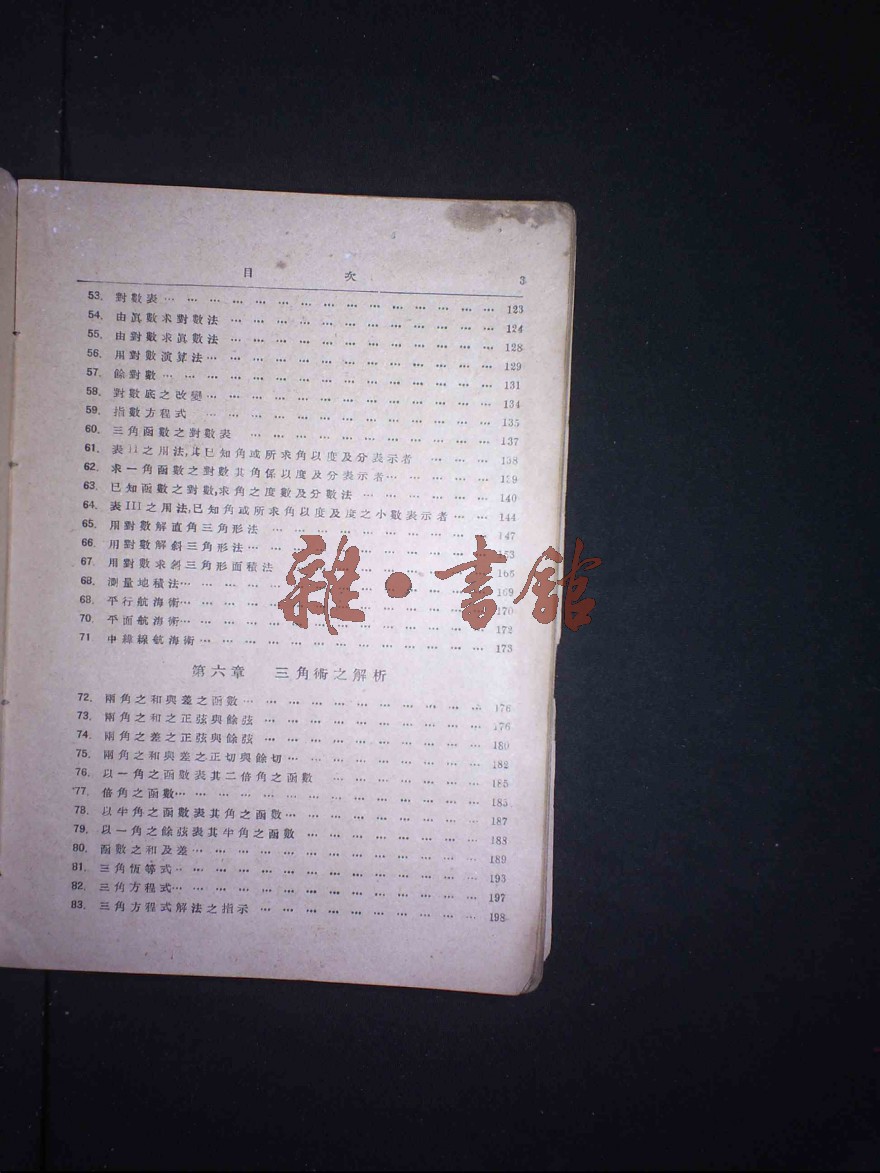 目 次 3
53. 對數表 … … … … … … … … … … … … … … … 123
54. 由眞數求對數法 … … … … … … … … … … … … 124
55. 由對數求眞數法 … … … … … … … … … … … … 128
56. 用對數演算法… … … … … … … … … … … … … 129
57. 餘對數… … … … … … … … … … … … … … … 131
58. 對數底之改變… … … … … … … … … … … … … 134
59. 指數方程式 … … … … … … … … … … … … … 135
60. 三角函數之對數表 … … … … … … … … … … … 137
61. 表II之用法,其已知角或所求角以度及分表示者 … … … 138
62. 求一角函數之對數其角係以度及分表示者… … … … 139
63. 已知函數之對數,求角之度數及分數法 … … … … … 140
64. 表III之用法,已知角或所求角以度及度之小數表示者 … … 144
65. 用對數解直角三角形法 … … … … … … … … … … 147
66. 用對數解斜三角形法… … … … … … … … … … … 153
67. 用對數求斜三角形面積法 … … … … … … … … … 166
68. 測量地積法… … … … … … … … … … … … … … 169
69. 平行航海術… … … … … … … … … … … … … … 170
70. 平面航海術… … … … … … … … … … … … … … 172
71. 中緯線航海術… … … … … … … … … … … … … 173
第六章 三角術之解析
72. 兩角之和與差之函數… … … … … … … … … … … 176
73. 兩角之和之正弦與餘弦 … … … … … … … … … … 176
74. 兩角之差之正弦與餘弦 … … … … … … … … … … 180
75. 兩角之和與差之正切與餘切… … … … … … … … … 182
76. 以一角之函數表其二倍角之函數 … … … … … … … 185
77. 倍角之函數… … … … … … … … … … … … … … 185
78. 以半角之函數表其角之函數… … … … … … … … … 187
79. 以一角之餘弦表其半角之函數 … … … … … … … … 188
80. 函數之和及差… … … … … … … … … … … … … 189
81. 三角恆等式… … … … … … … … … … … … … … 193
82. 三角方程式… … … … … … … … … … … … … … 197
83. 三角方程式解法之指示 … … … … … … … … … … 198
雜·書館